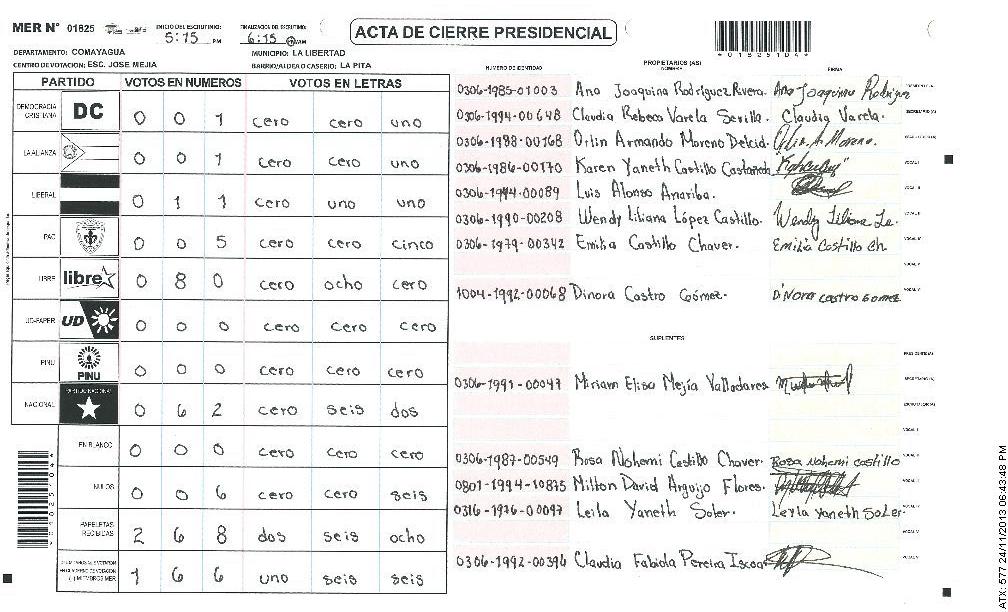 MER N° 01825
INICIO DEL ESCRUTINIO:
5:15 PM
FINALIZACION DEL ESCRUTINIO:
6:15 AM
ACTA DE CIERRE PRESIDENCIAL
DEPARTAMENTO: COMAYAGUA
MUNICIPIO: LA LIBERTAD
CENTRO DE VOTACION: ESC. JOSE MEJIA
BARRIO/ALDEA O CASERIO: LA PITA
PARTIDO VOTOS EN NUMEROS VOTOS EN LETRAS
DEMOCRACIA CRISTIANA DC 0 0 1 cero cero uno
LA ALIANZA 0 0 1 cero cero uno
LIBERAL 0 1 1 cero uno uno
PAC 0 0 5 cero cero cinco
LIBRE libre 0 8 0 cero ocho cero
UD-FAPER UD 0 0 0 cero cero cero
PINU PINU 0 0 0 cero cero cero
NACIONAL PARTIDO NACIONAL 0 6 2 cero seis dos
EN BLANCO 0 0 0 cero cero cero
NULOS 0 0 6 cero cero seis
PAPELETAS RECIBIDAS 2 6 8 dos seis ocho
MIEMBROS MER 1 6 6 uno seis seis
NUMERO DE IDENTIDAD
PROPIETARIOS (AS)
NOMBRE
FIRMA
0306-1985-01003 Ana Joaquina Rodríguez Rivera. Ana Joaquina Rodriguez
0306-1994-00648 Claudia Rebeca Varela Sevilla. Claudia Varela.
0306-1988-00168 Orlin Armando Moreno Delcid. Orlin A. Moreno.
0306-1986-00170 Karen Yaneth Castillo Castañeda
0306-1994-00089 Luis Alonso Anariba.
0306-1990-00208 Wendy Liliana López Castillo. Wendy Liliana Lo.
0306-1979-00342 Emilia Castillo Chaver. Emilia Castillo Ch
1004-1992-00068 Dinora Castro Gómez. Dinora castro Gomez
SUPLENTES
0306-1991-00047 Miriam Elisa Mejía Valladares
0306-1987-00549 Rosa Nohemi Castillo Chaver. Rosa Nohemi castillo
0801-1994-10875 Milton David Argujo Flores.
0316-1976-00097 Leila Yaneth Soler. Leyla Yaneth Soler.
0306-1992-00396 Claudia Fabiola Pereira Iscoa
ATX: 577.24/11/2013 06:43:48 PM